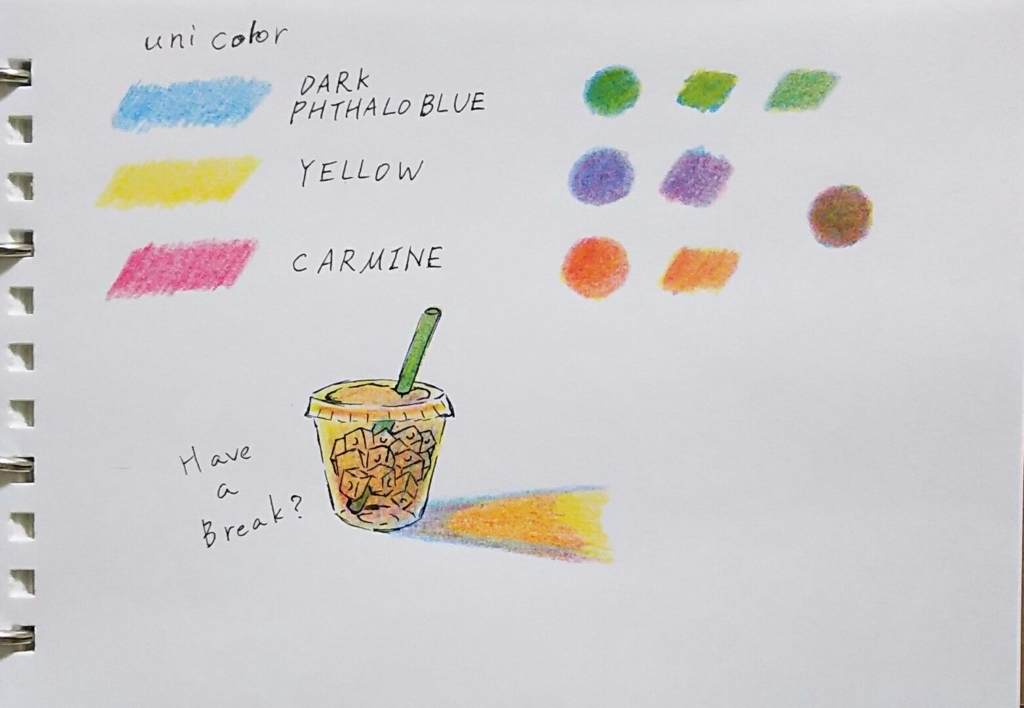 uni color
DARK
PHTHALO BLUE
YELLOW
CARMINE
Have
a
Break?